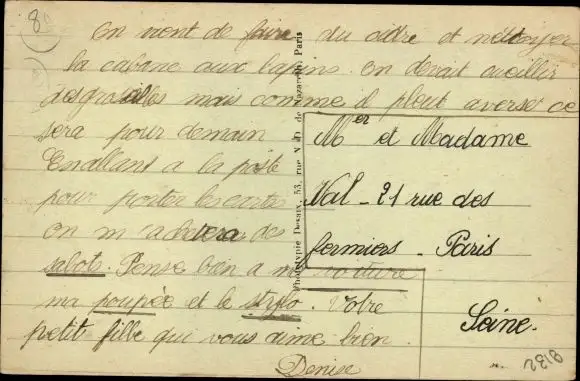 8
On vient de faire du cidre et nettoyer
la cabane aux lapins. On devait cueillir
des groseilles mais comme il pleut a verse ce
sera pour demain
En allant a la poste
pour porter les cartes
on m'achetera des
sabots. Pense bien a ma voiture
ma poupée et le stylo. Votre
petite fille qui vous aime bien.
Denise
Phototypie Desaix, 53, rue N.-D. de Nazareth, Paris
Mer et Madame
Val - 21 rue des
fermiers - Paris
Seine.